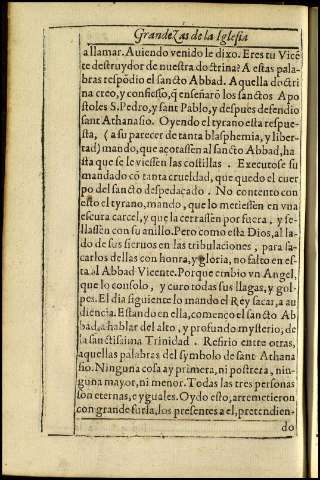 Grandezas de la Iglesia
a llamar. Auiendo venido le dixo. Eres tu Vicẽ
te destruydor de nuestra doctrina? A estas pala-
bras respõdio el sancto Abbad. Aquella doctri
na creo, y confiesso, q̃ enseñarõ los sanctos Apo
stoles S. Pedro, y sant Pablo, y despues defendio
sant Athanasio. Oyendo el tyrano esta respue-
sta, (a su parecer de tanta blasphemia, y liber-
tad) mando, que açotassen al sancto Abbad, ha
sta que se le viessen las costillas. Executose su
mandado cõ tanta crueldad, que quedo el cuer
po del sancto despedaçado. No contento con
esto el tyrano, mãndo, que lo metiessen en vna
escura carcel, y que la cerrassen por fuera, y se-
llassen con su anillo. Pero como esta Dios, al la-
do de sus sieruos en las tribulaciones, para sa-
carlos dellas con honra, y gloria, no falto en es-
ta al Abbad Vicente. Porque embio vn Angel,
que lo consolo, y curo todas sus llagas, y gol-
pes. El dia siguiente lo mando el Rey sacar, a au
diencia. Estando en ella, començo el sancto Ab
bad, a hablar del alto, y profundo mysterio, de
la sanctissima Trinidad. Refirio entre otras,
aquellas palabras del symbolo de sant Athana
sio. Ninguna cosa ay primera, ni postrera, nin-
guna mayor, ni menor. Todas las tres personas
son eternas, e yguales. Oydo esto, arremetieron
con grande furia, los presentes a el, pretendien-
do